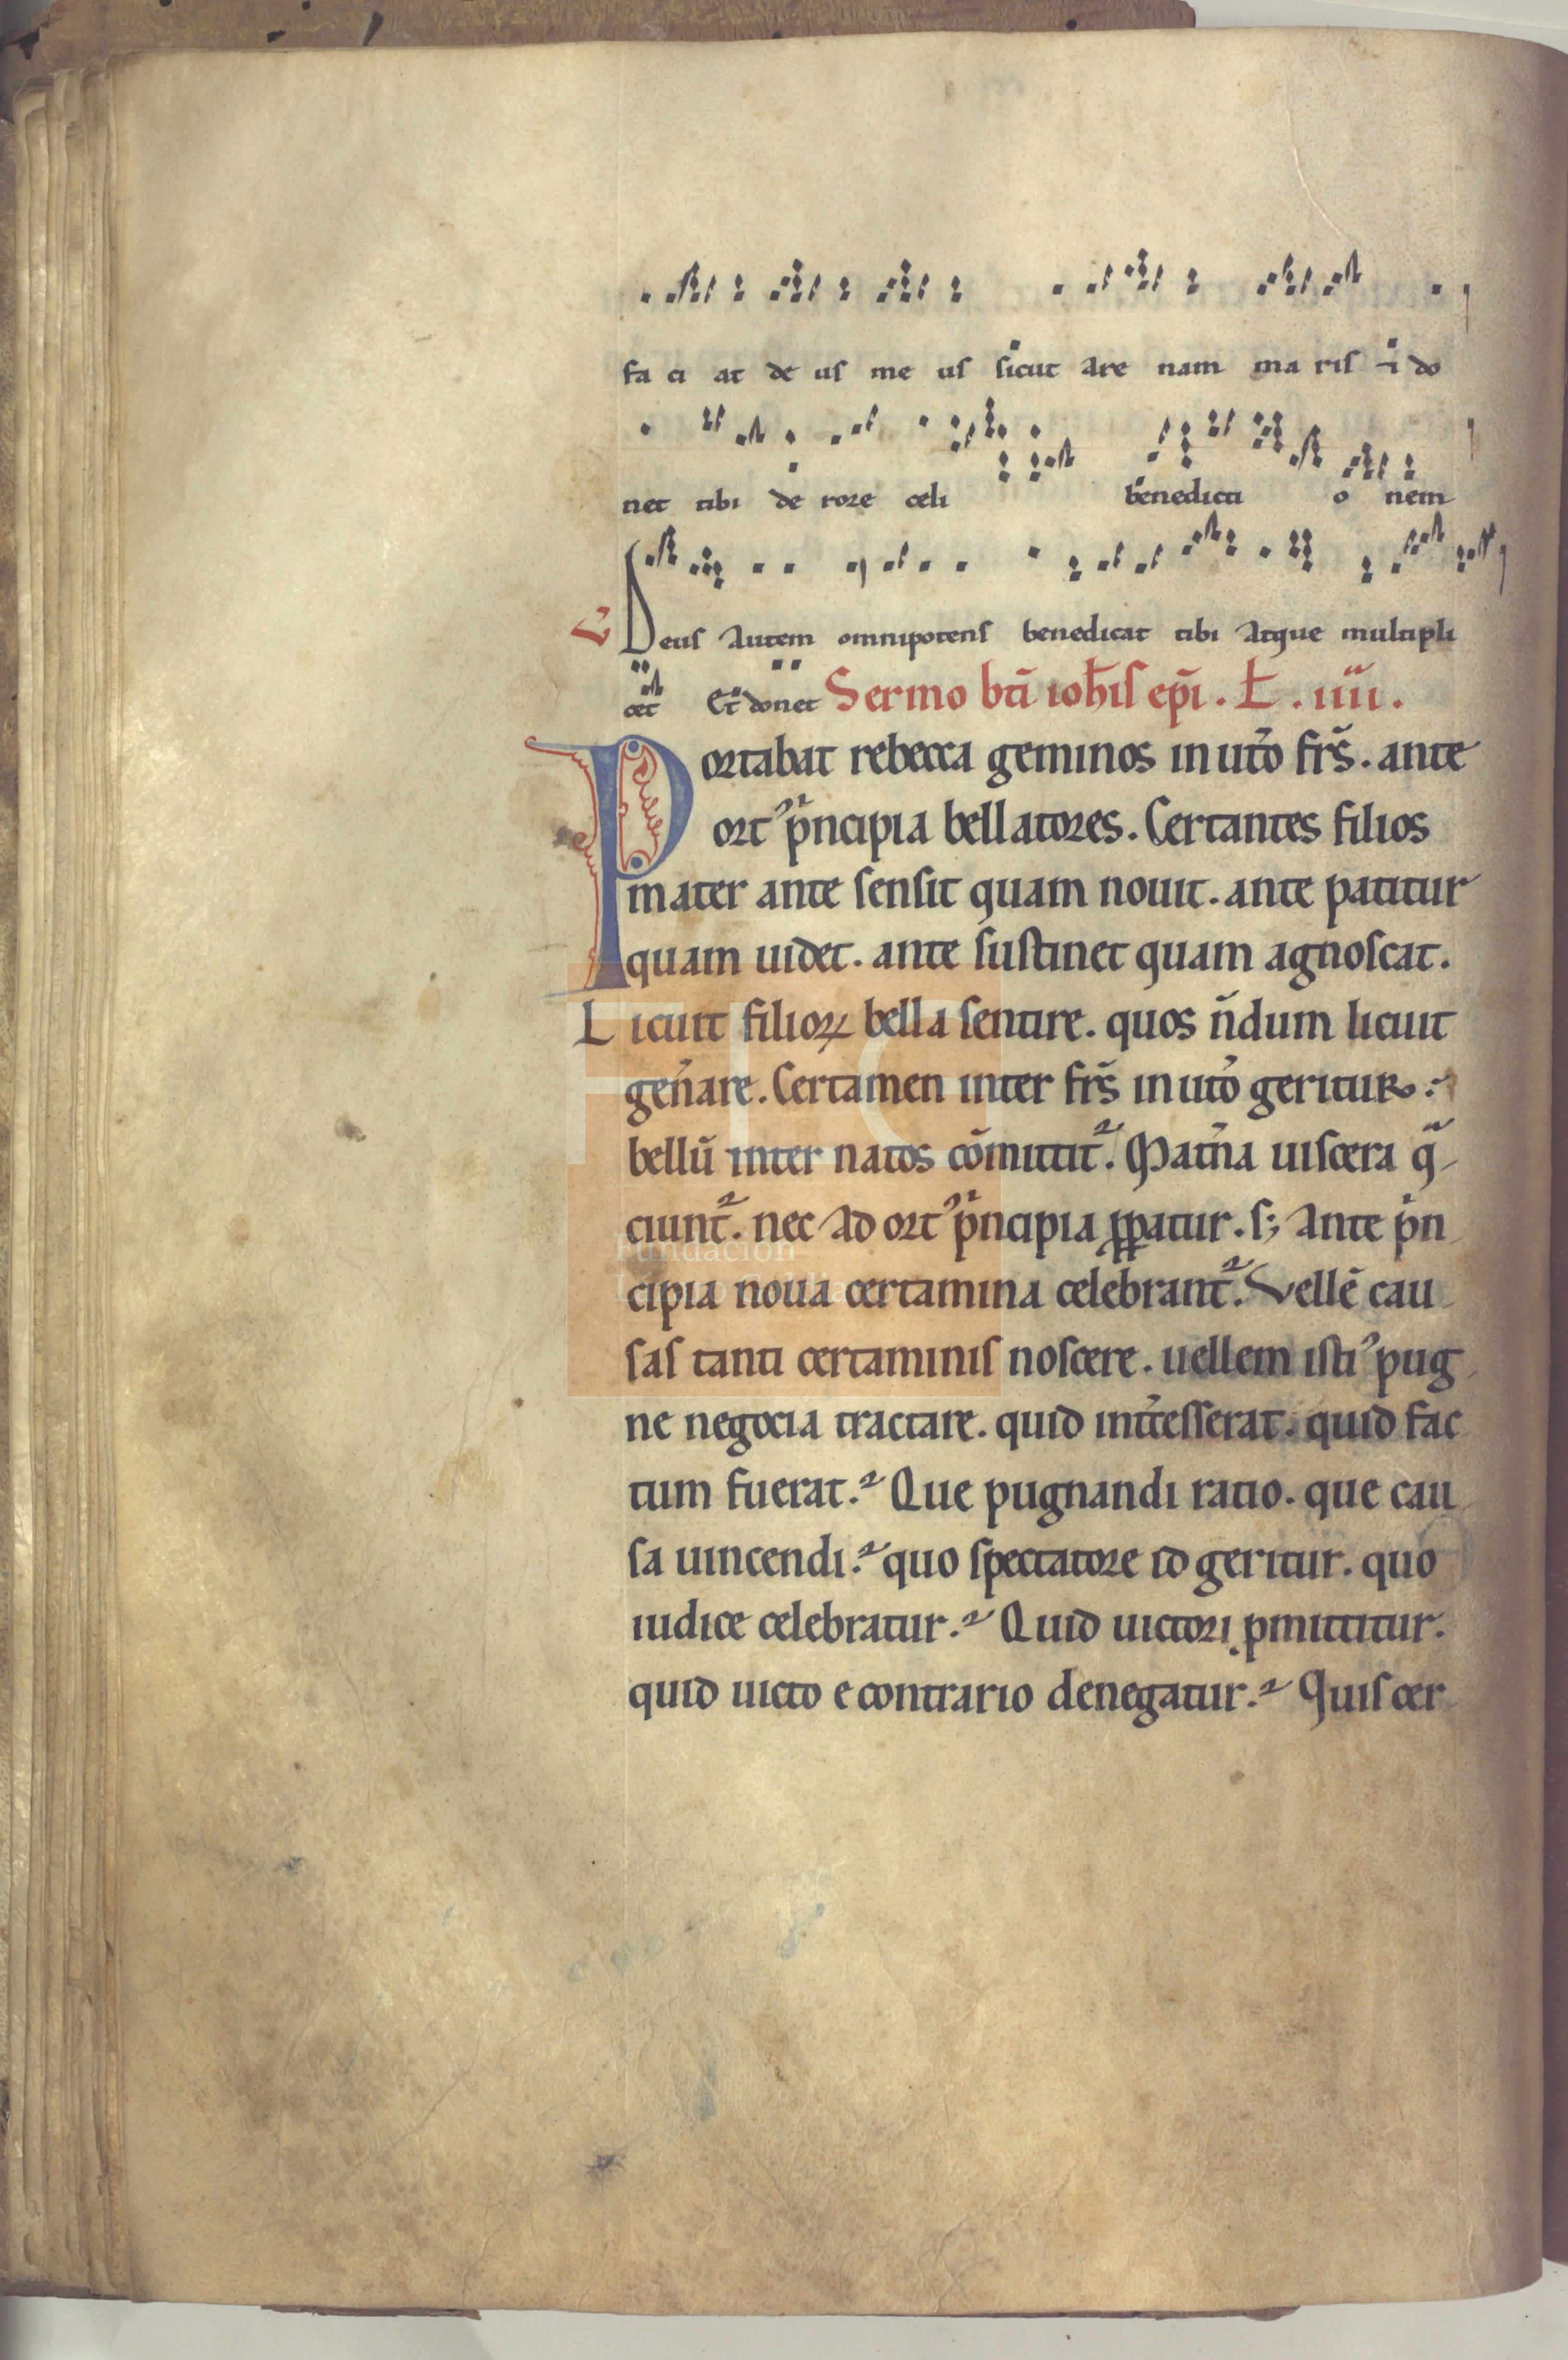 fa ci at de us me us sicut are nam ma ris ⁊ do
net tibi de rore celi benedicti o nem
Deus autem omnipotens benedicat tibi atque multipli
cet Et donet Sermo bt̄i ioħis ep̄i . L̵ . iiii .
Portabat rebecca geminos in ut͛o fr̄s . ante
ort᾽ p̍ncipia bellatores . Certantes filios
mater ante sensit quam nouit . ante patitur
quam uidet . ante sustinet quam agnoscat .
Licuit filioꝝ bella sentire . quos n̄dum licuit
gen͛are . Certamen inter fr̄s in ut͛o geritur :
bellū inter natos cōmittit᷑ . Mat͛na uiscera q̄
ciunt᷑ . nec ad ort᾽ p̍ncipia p̲patur . s; ante p̍n
cipia noua certamina celebrant᷑ . Vellē cau
sas tanti certaminis noscere . uellem isti᾽ pug
ne negocia tractare . quid int͛esserat . quid fac
tum fuerat . Que pugnandi ratio . que cau
sa uincendi . quo spectatore id geritur . quo
iudice celebratur . Quid uictori pmittitur .
quid uicto e contrario denegatur . Quis cer
Fundación